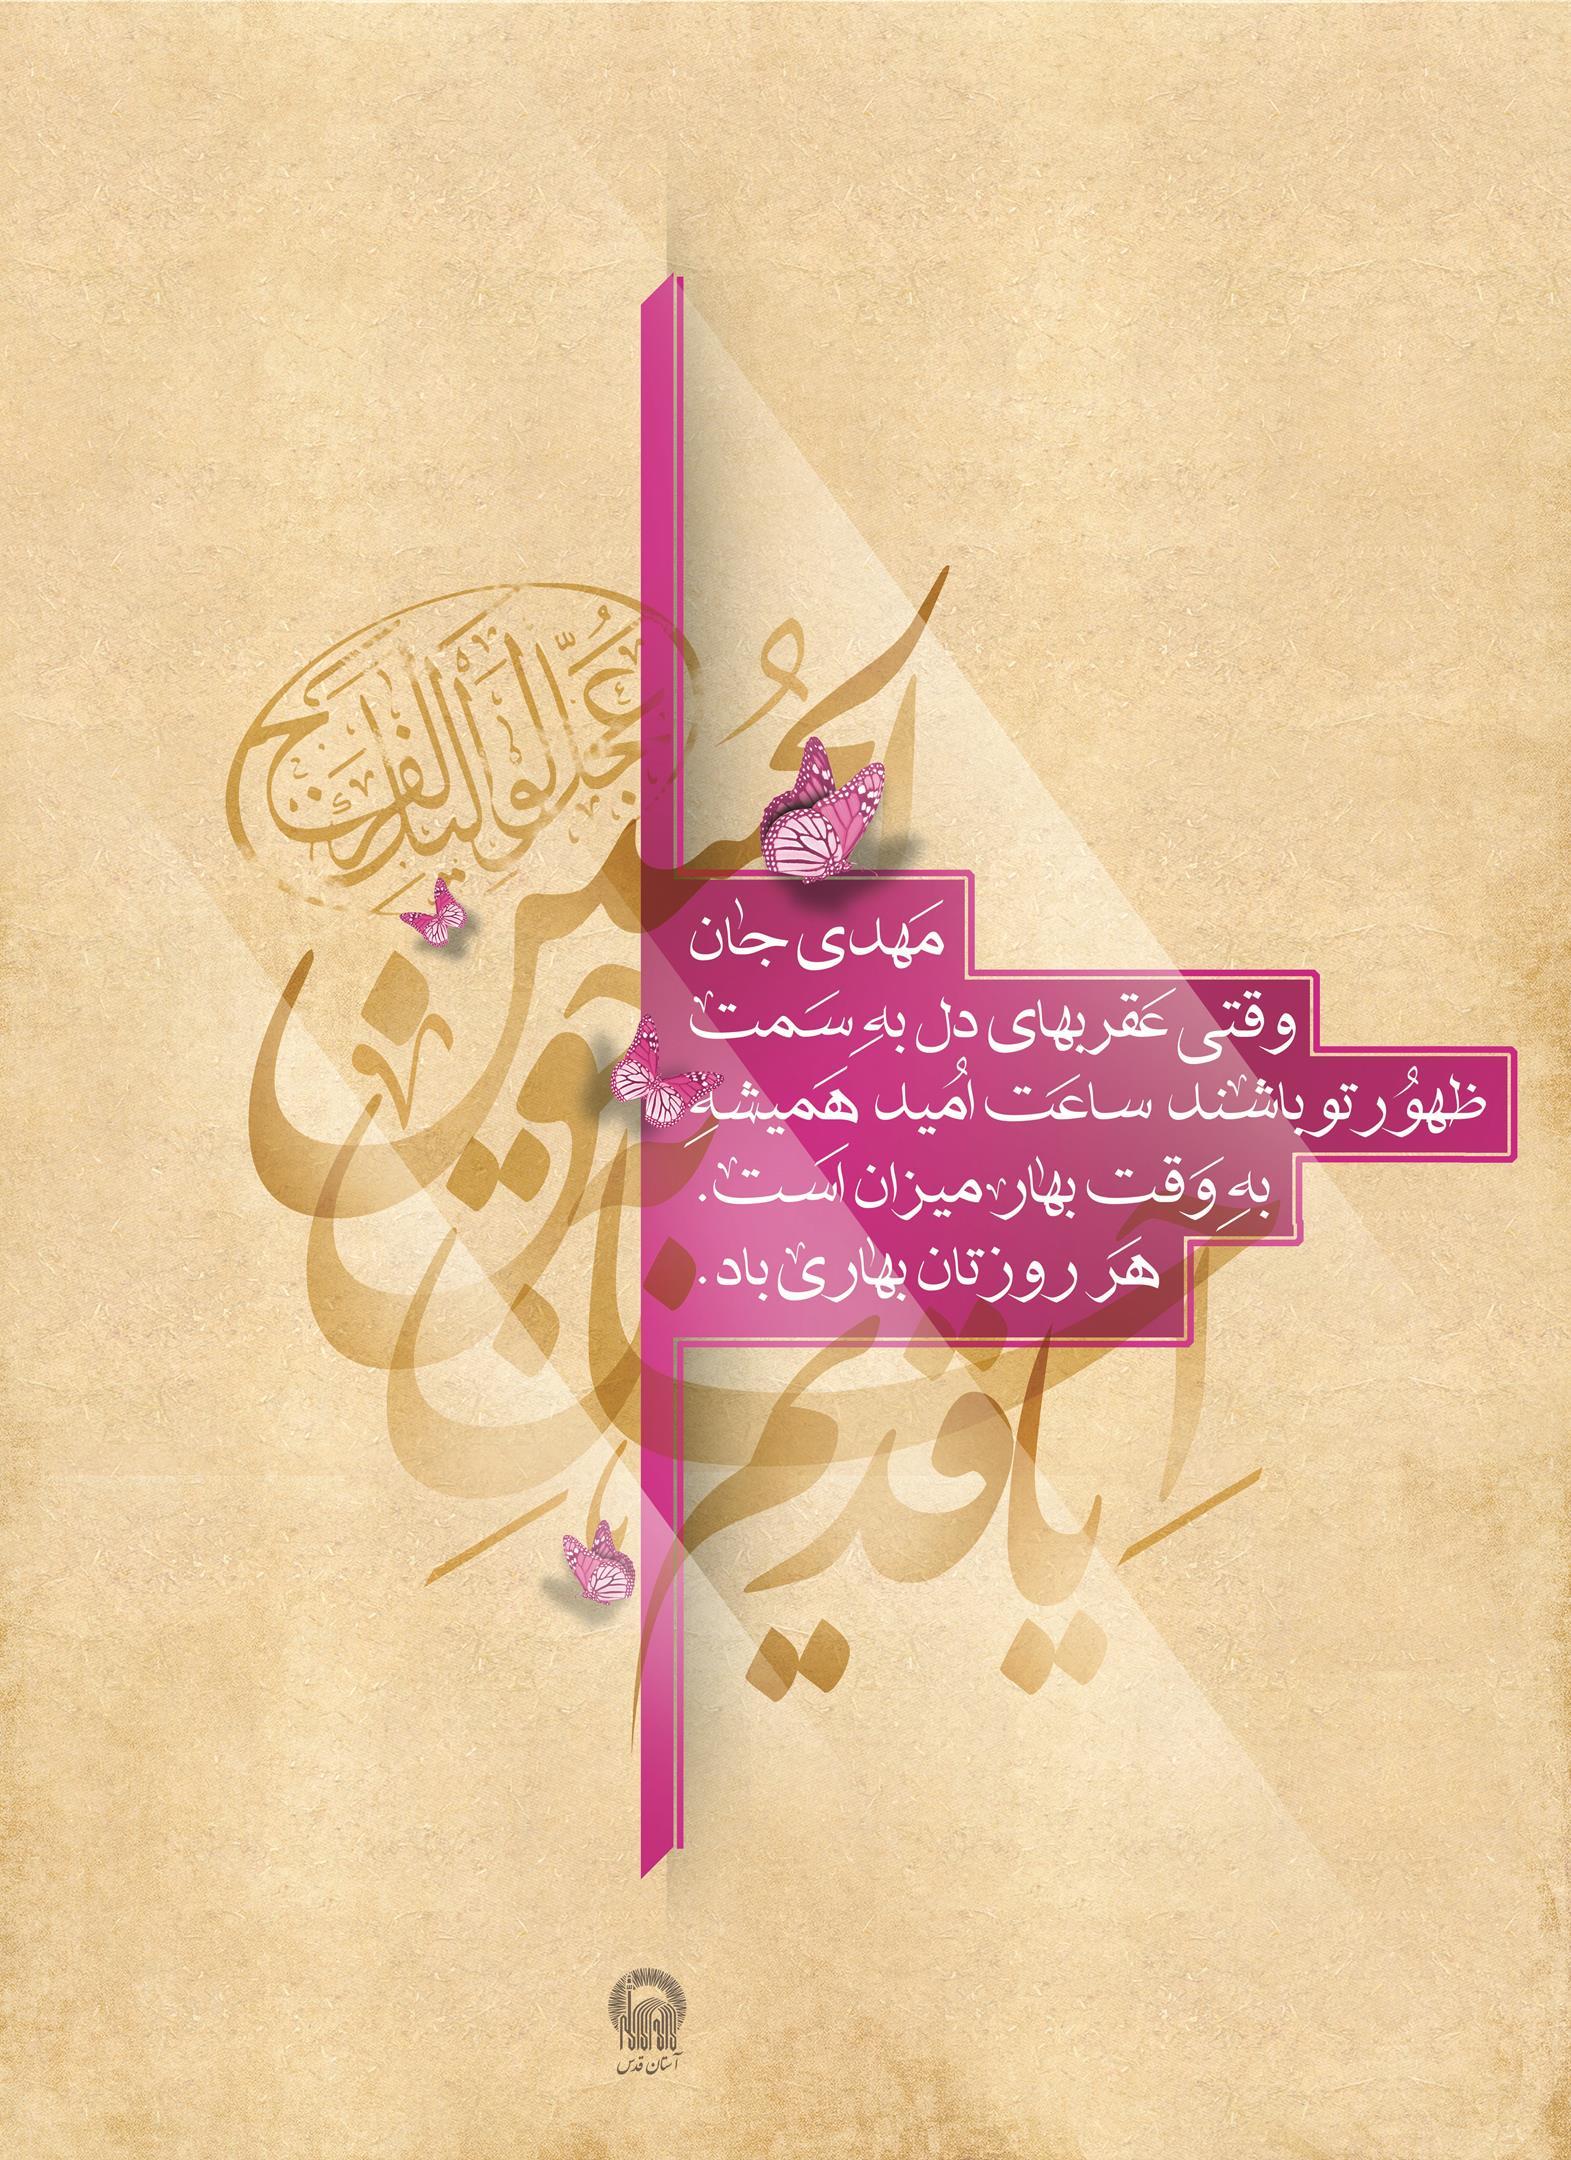 عجل لولیک الفرج
یا قدیم الاحسان بحق الحسین
مهدی جان
وقتی عقربهای دل به سمت
ظهور تو باشند ساعت امید همیشه
به وقت بهار میزان است.
هر روزتان بهاری باد.
آستان قدس